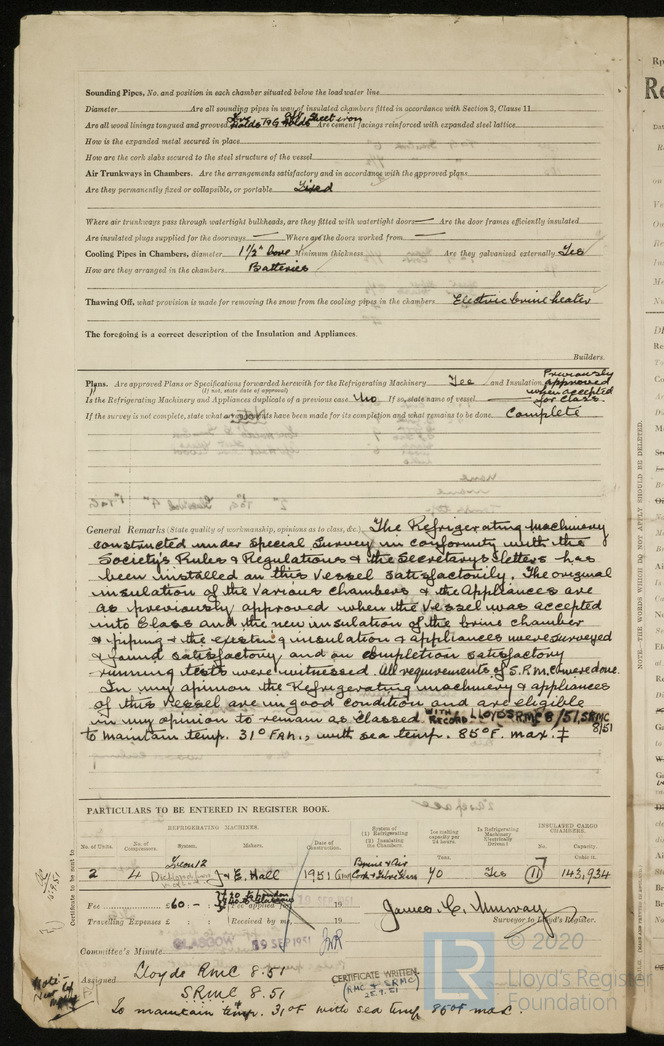 Sounding Pipes, No. and position in each chamber situated below the load water line
Diameter Are all sounding pipes in way of insulated chambers fitted in accordance with Section 3, Clause 11
Are all wood linings tongued and grooved Holds T&G Sheet iron Are cement facings reinforced with expanded steel lattice
How is the expanded metal secured in place
How are the cork slabs secured to the steel structure of the vessel
Air Trunkways in Chambers. Are the arrangements satisfactory and in accordance with the approved plans
Are they permanently fixed or collapsible, or portable Fixed
Where air trunkways pass through watertight bulkheads, are they fitted with watertight doors — Are the door frames efficiently insulated
Are insulated plugs supplied for the doorways — Where are the doors worked from —
Cooling Pipes in Chambers, diameter 1½" bore Minimum thickness Are they galvanised externally Yes
How are they arranged in the chambers Batteries
Thawing Off, what provision is made for removing the snow from the cooling pipes in the chambers Electric brine heater
The foregoing is a correct description of the Insulation and Appliances.
Builders.
Plans. Are approved Plans or Specifications forwarded herewith for the Refrigerating Machinery Yes and Insulation Previously approved when accepted for Class.
(If not, state date of approval)
Is the Refrigerating Machinery and Appliances duplicate of a previous case No If so, state name of vessel —
If the survey is not complete, state what arrangements have been made for its completion and what remains to be done Complete
General Remarks (State quality of workmanship, opinions as to class, &c.) The Refrigerating Machinery
constructed under Special Survey in conformity with the
Society's Rules & Regulations & the Secretary's letters has
been installed on this Vessel satisfactorily. The original
insulation of the various chambers & the Appliances are
as previously approved when the Vessel was accepted
into Class and the new insulation of the brine chamber
& piping & the existing insulation & appliances were surveyed
& found satisfactory and on completion satisfactory
running tests were witnessed. All requirements of S.R.M.C. were done.
In my opinion the Refrigerating machinery & appliances
of this Vessel are in good condition and are eligible
in my opinion to remain as classed WITH RECORD LLOYDS RMC 8/51, SRMC 8/51
to maintain temp. 31° FAH., with sea temp. 85°F. max. ‡
PARTICULARS TO BE ENTERED IN REGISTER BOOK.
REFRIGERATING MACHINES.
No. of Units. No. of Compressors. System. Makers. Date of Construction. System of (1) Refrigerating (2) Insulating the Chambers. Ice melting capacity per 24 hours Is Refrigerating Machinery Electrically Driven? INSULATED CARGO CHAMBERS.
Tons. No. Capacity. Cubic ft.
2 4 Freon 12 J & E. Hall 1951 Brine & Air 70 Yes 11 143,934
7
Fee £60 : Fee applied for 19
19 SEP 1951
Travelling Expenses £ : : Received by me, 19
James C. Murray
Surveyor to Lloyd's Register.
Committee's Minute GLASGOW 19 SEP 1951
Assigned Lloyds RMC 8.51
SRMC 8.51
To maintain temp. 31°F with sea temp 85°F max.
CERTIFICATE WRITTEN.
(RMC & SRMC)
Certificate to be sent to
NOTE.—THE WORDS WHICH DO NOT APPLY SHOULD BE DELETED.
LR
© 2020
Lloyd's Register
Foundation